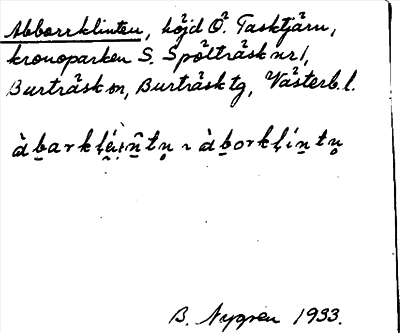 Abborrklinten, höjd Ö. Tasktjärn,
kronoparken S. Spölträsk nr 1,
Burträsk sn, Burträsk tg, Västerb. l.
B. Nygren 1933.